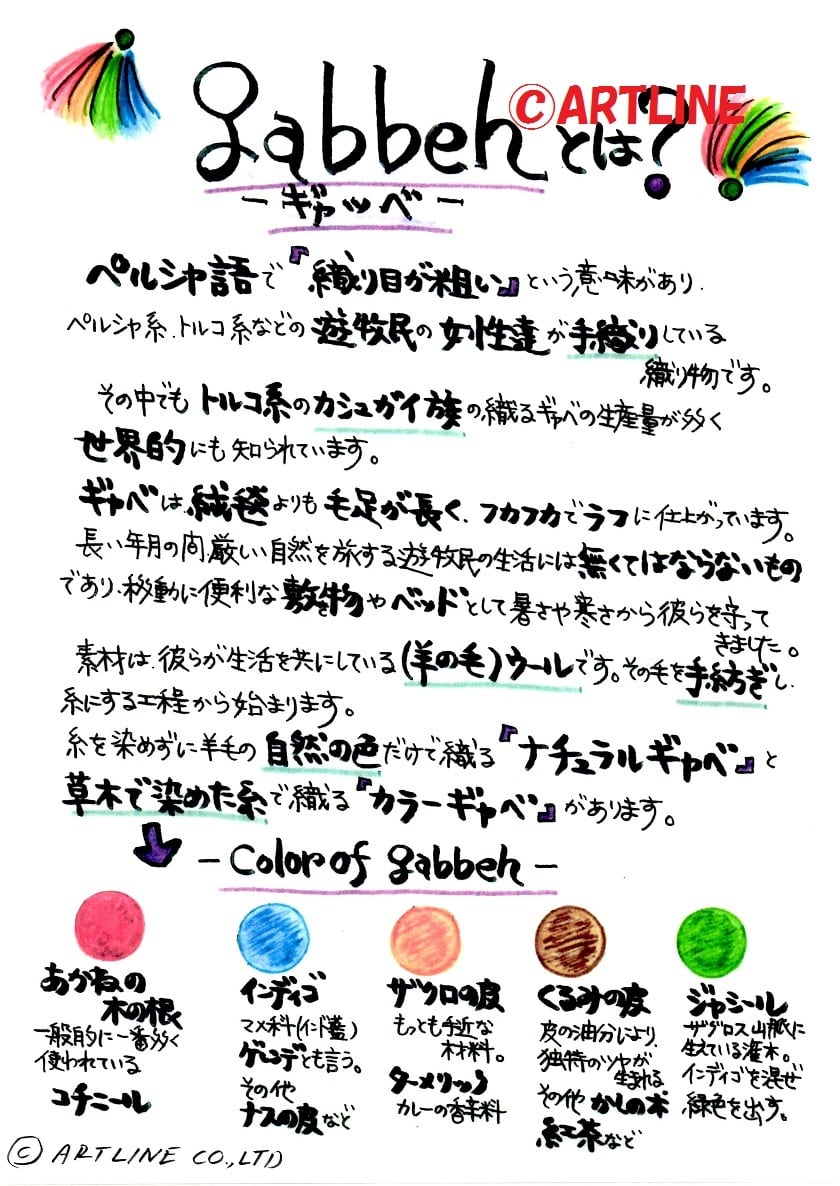 gabbehとは?
©ARTLINE
-ギャッベ-
ペルシャ語で『織り目が粗い』という意味があり、
ペルシャ系、トルコ系などの遊牧民の女性達が手織りしている
織り物です。
その中でもトルコ系のカシュガイ族の織るギャベの生産量が多く
世界的にも知られています。
ギャベは、絨毯よりも毛足が長く、フカフカでラフに仕上がっています。
長い年月の間、厳しい自然を旅する遊牧民の生活には無くてはならないもの
であり、移動に便利な敷き物やベッドとして暑さや寒さから彼らを守って
きました。
素材は、彼らが生活を共にしている(羊の毛)ウールです。その毛を手紡ぎし、
糸にする工程から始まります。
糸を染めずに羊毛の自然の色だけで織る『ナチュラルギャベ』と
草木で染めた糸で織る『カラーギャベ』があります。
-Color of gabbeh-
あかねの
木の根
一般的に一番多く
使われている
コチニール
インディゴ
マメ科(インド藍)
ゲレデとも言う。
その他
ナスの皮など
ザクロの皮
もっとも手近な
材料。
ターメリック
カレーの香辛料
くるみの皮
皮の油分により、
独特のツヤが
生まれる
その他 かしの木
紅茶など
ジャシール
ザグロス山脈に
生えている灌木。
インディゴを混ぜ
緑色を出す。
© ARTLINE CO.,LTD